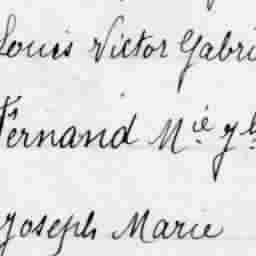 Louis Victor Gabri
Fernand M.ie
Joseph Marie